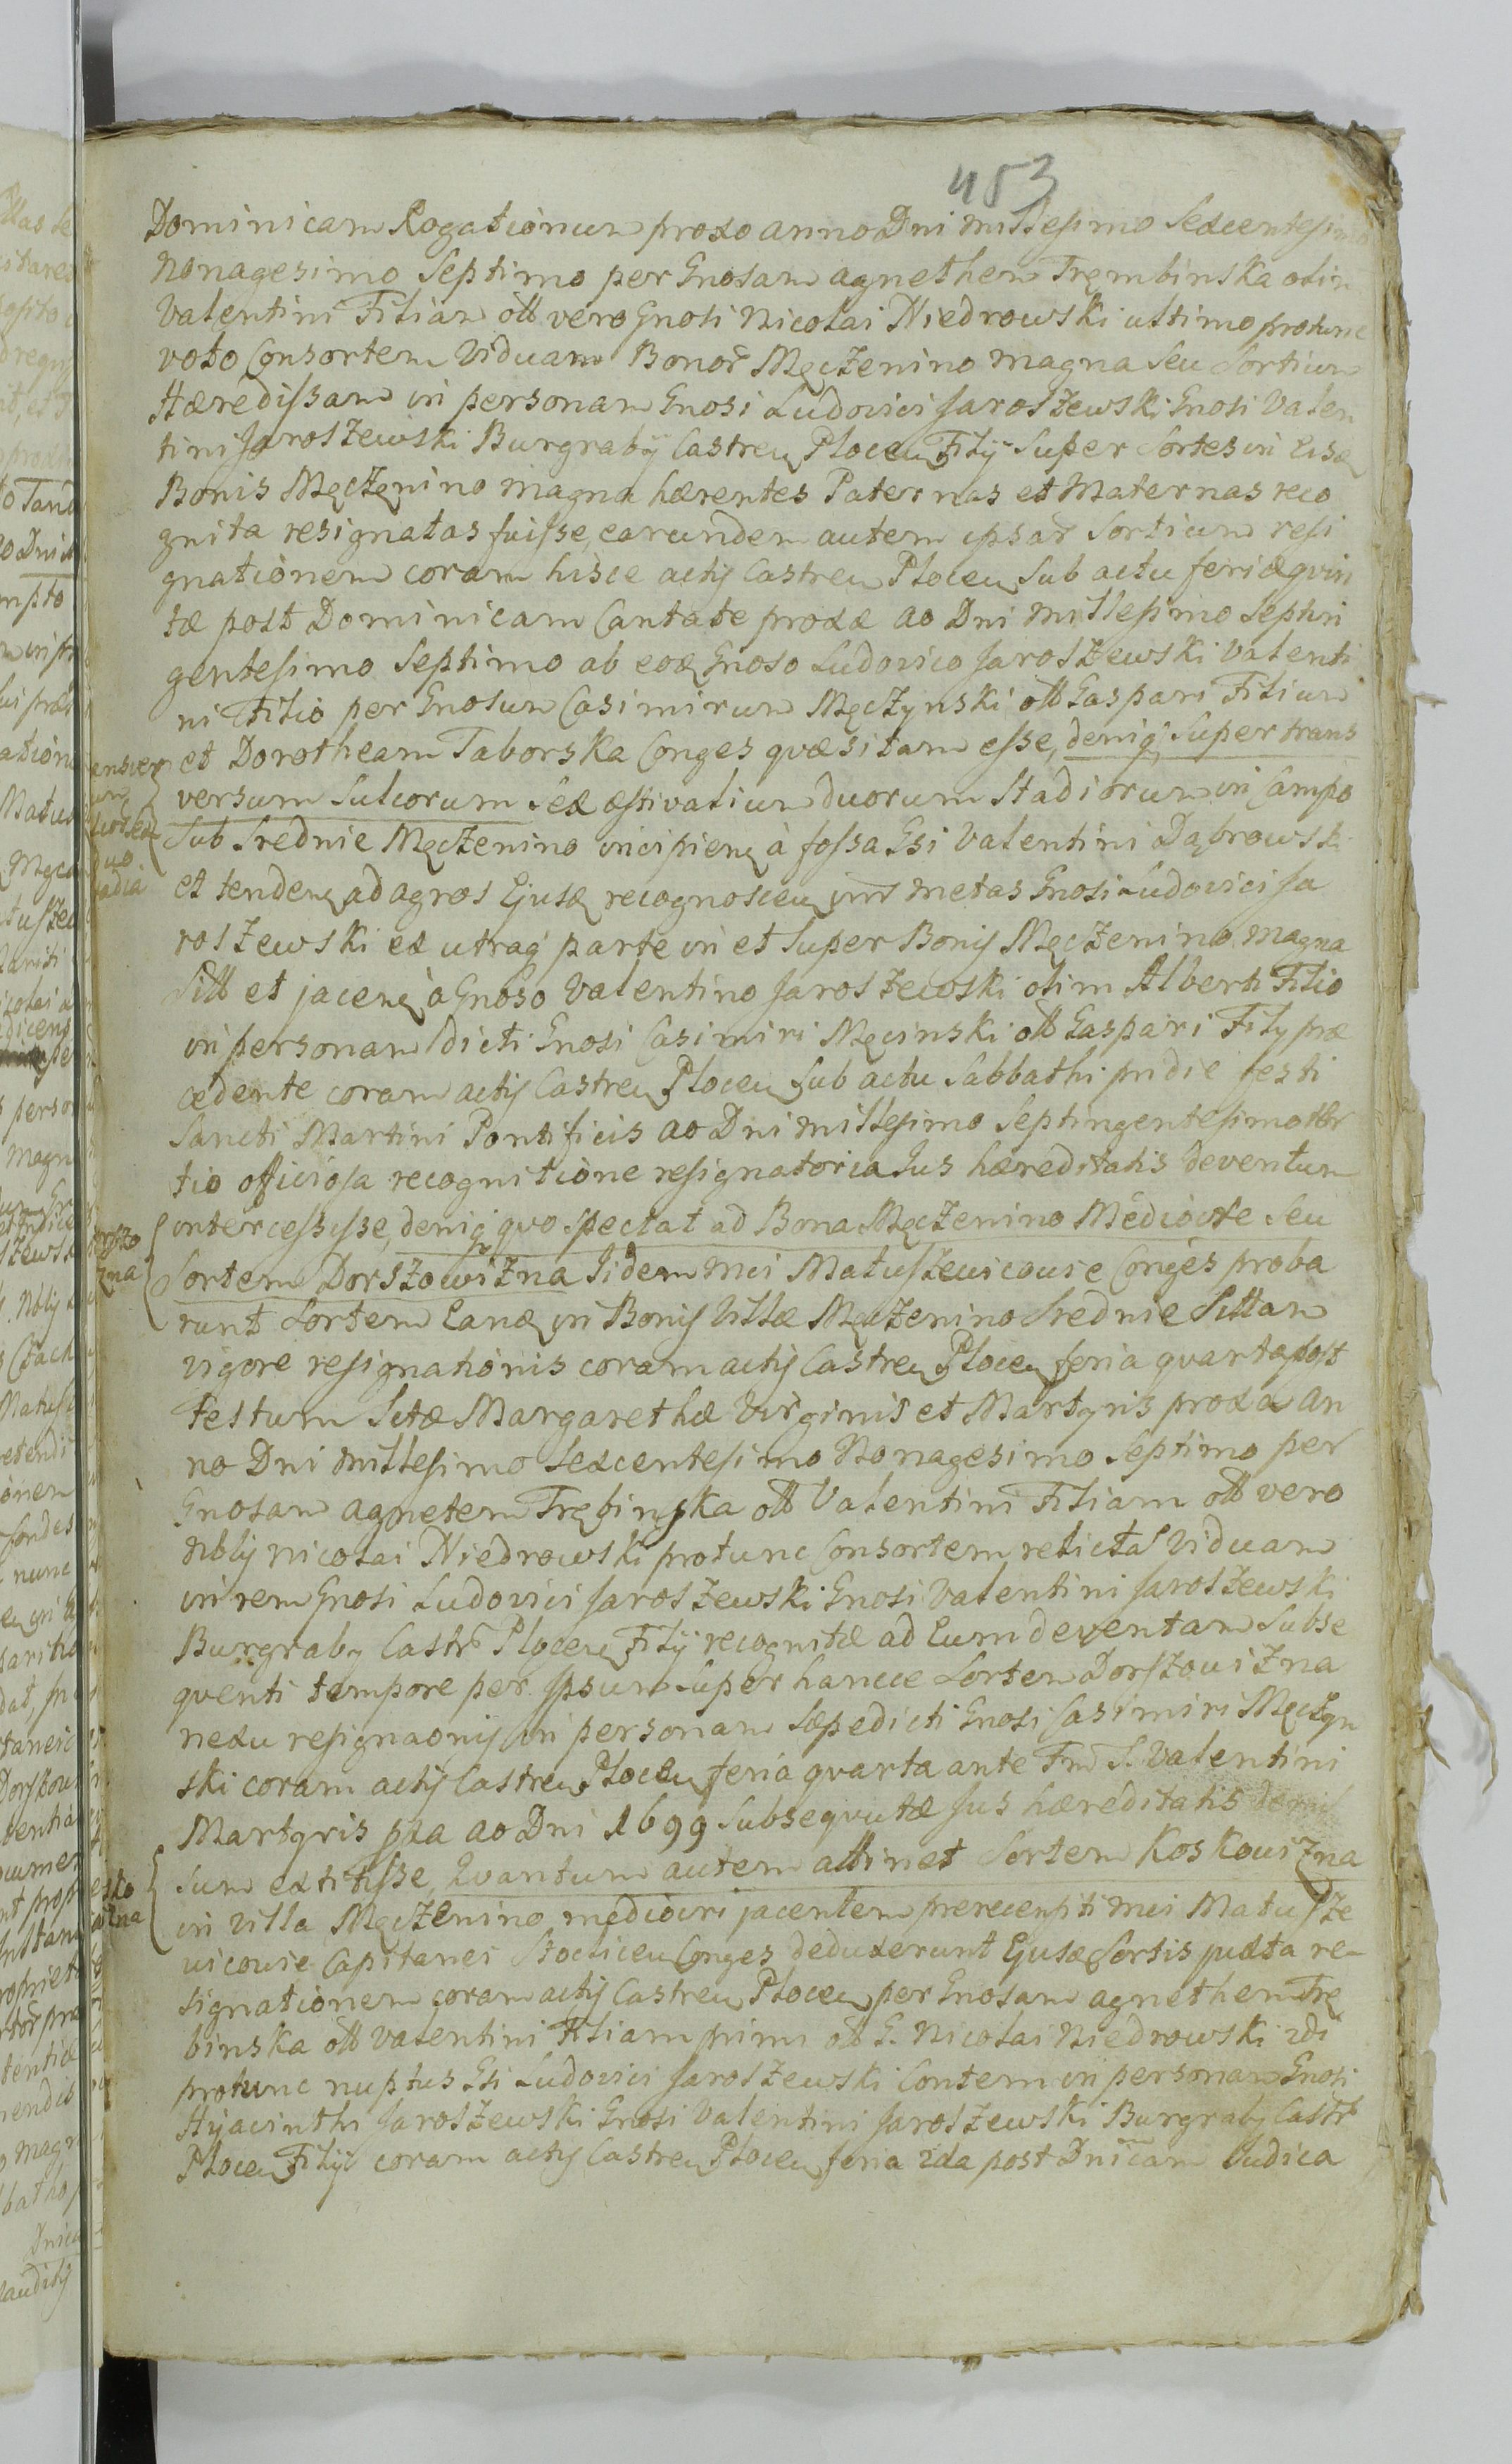 453
Dominicam Rogationum proxo anno Dni millesimo Sexcentesimo
Nonagesimo Septimo per Gnosam agnethem Trembinska olim
Valentini Filiam ott vero Gnosi Nicolai Niedrowski ultimo protunc
voto Consortem Viduam Bonor Męczenino magna Seu Sortium
Hæredissam in personam Gnosi Ludovici Jaroszewski Gnosi Valen
tini Jaroszewski Burgrabÿ Castren Plocen Filÿ Super Sortes in eisd
Bonis Męczenino magna hærentes Paternas et Maternas reco
gnita resignatas fuisse, earundem autem ipsar Sortium resi
gnationem coram hisce actis Castren Plocen Sub actu feriæ quin
tæ post Dominicam Cantate proxæ ao Dni millesimo Septin
gentesimo Septimo ab eod Gnoso Ludovico Jaroszewski Valenti
ni Filio per Gnosum Casimirum Męczynski ott Gaspari Filium
et Dorotheam Taborska Conges quæsitam esse, deniq Super trans
versum Sulcorum Sex æstivalium duorum Stadiorum in Campo
Sub Srednie Męczenino incipien à fossa Gsi Valentini Dąbrowski
et tenden ad agros Ejusd recognoscen inr metas Gnosi Ludovici Ja
roszewski ex utraq parte in et Super Bonis Męczenino magna
Sitt et jacen à Gnoso Valentino Jaroszewski olim Alberti Filio
in personam dicti Gnosi Casimiri Męcinski ott Gaspari Filÿ præ
cedente coram actis Castren Plocen Sub actu Sabbathi pridie festi
Sancti Martini Pontificis ao Dni millesimo Septingentesimo ter
tio officiosa recognitione resignatoria Jus hæreditatis deventum
intercessisse, deniq quo spectat ad Bona Męczenino Mediocre Seu
Sortem Dorszowizna Iidem Mci Matuszewicowie Conges proba
runt Sortem eand in Bonis Villæ Męczenino Srednie Sittam
vigore resignationis coram actis Castren Plocen feria quarta post
Festum Sctæ Margarethæ Virginis et Martyris proxa An
no Dni millesimo Sexcentesimo Nonagesimo Septimo per
Gnosam agnetem Trębinska ott Valentini Filiam ott vero
Nblis Nicolai Niedrowski protunc Consortem, relictā Viduam
in rem Gnosi Ludovici Jaroszewski Gnosi Valentini Jaroszewski
Burgraby Castr Plocen Filÿ recognitæ ad Eum deventam Subse
quenti tempore per ipsum Super hancce Sortem Dorszowizna
nexu resignaonis in personam Sæpedicti Gnosi Casimiri Męczyn
ski coram actis Castren Plocen feria quarta ante Fm S. Valentini
Martyris pxa ao Dni 1699 Subsequutæ Jus hæreditatis
Sum extitisse, Quantum autem attinet Sortem Koskowizna
in Villa Męczenino mediocri jacentem prerecensiti Mci Matusze
wicowie Capitanei Stoclicen Conges deduxerunt Ejusd Sortis juxta re-
signationem coram actis Castren Plocen per Gnosam agnethem Trę
binska ott Valentini Filiam primi ott G. Nicolai Niedrowski 2di
protunc nuptus Gsi Ludovici Jaroszewski Contem in personam Gnosi
Hyacinthi Jaroszewski Gnosi Valentini Jaroszewski Burgraby Castr
Plocen Filÿ coram actis Castren Plocen feria 2da post Dnicam Judica